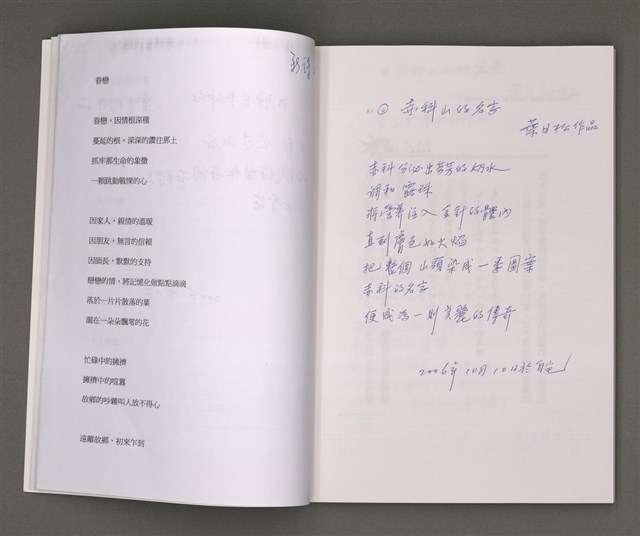 眷戀
眷戀，因情根深種
蔓延的根，深深的鑽往那土
抓牢那生命的象徵
一顆跳動戰慄的心
因家人，親情的溫暖
因朋友，無言的信賴
因師長，默默的支持
戀戀的情，將記憶化做點點滴滴
落於一片片散落的葉
溺在一朵朵飄零的花
忙碌中的擁擠
擁擠中的喧囂
故鄉的吵雜叫人放不得心
遠離故鄉，初來乍到
新詩
赤科山的名字
葉日松作品
赤科分泌出芬芳的奶水
調和露珠
將營養注入金針的體內
直到膚色如火焰
把整個山頭染成一季圖案
赤科的名字
便成為一則美麗的傳奇
2006年10月10日於自宅